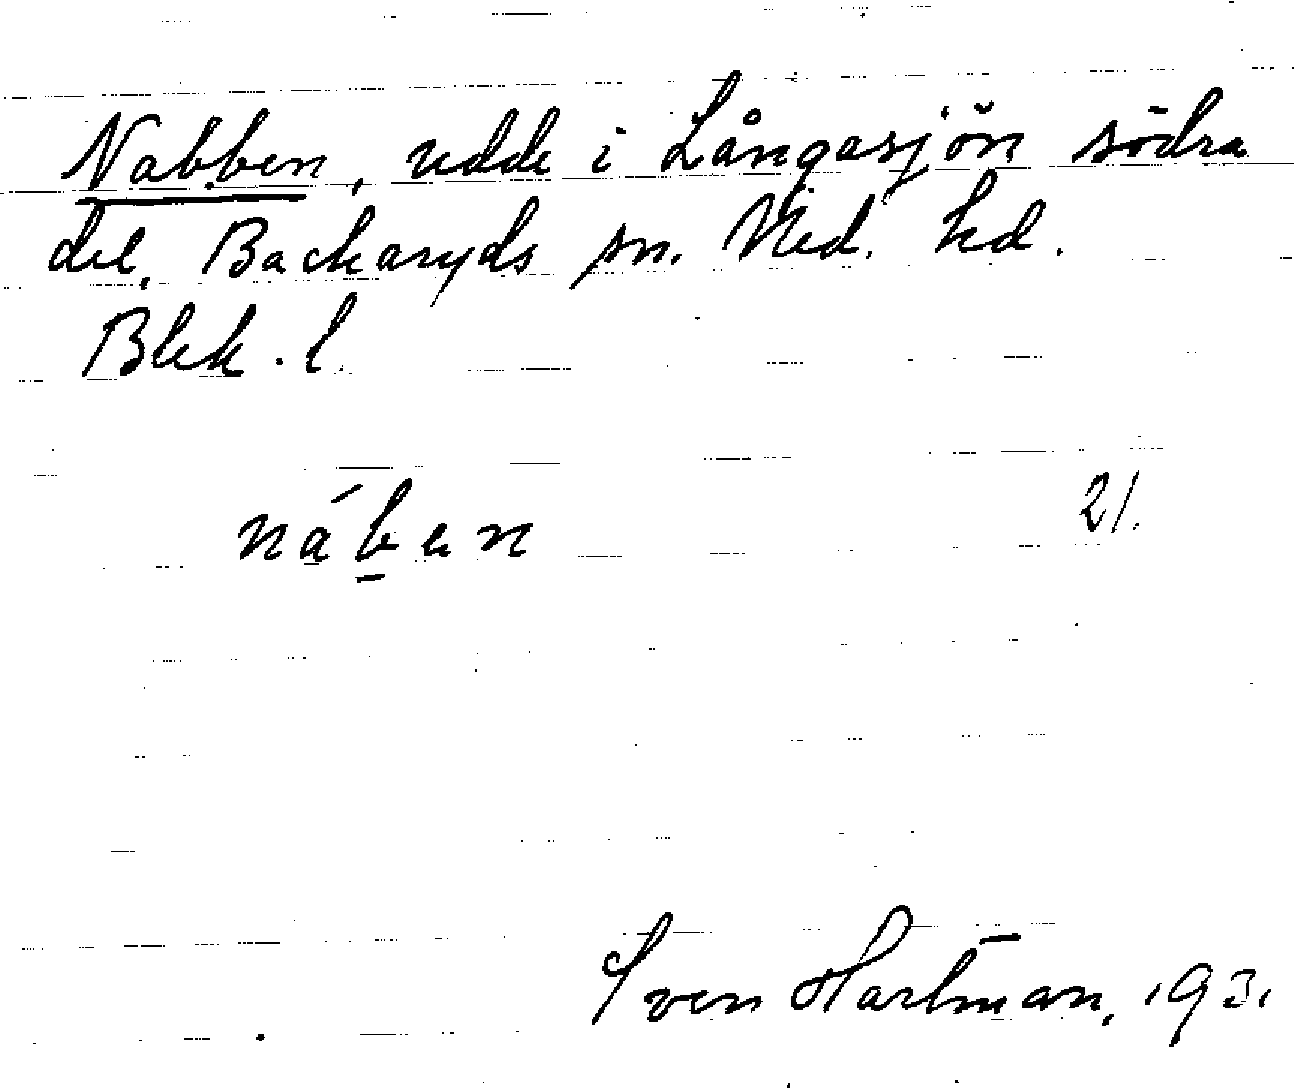 Nabben, udde i Långasjön södra
del, Backaryds sn. Med. hd.
Blek. l.
náben 21.
Sven Hartman, 1931